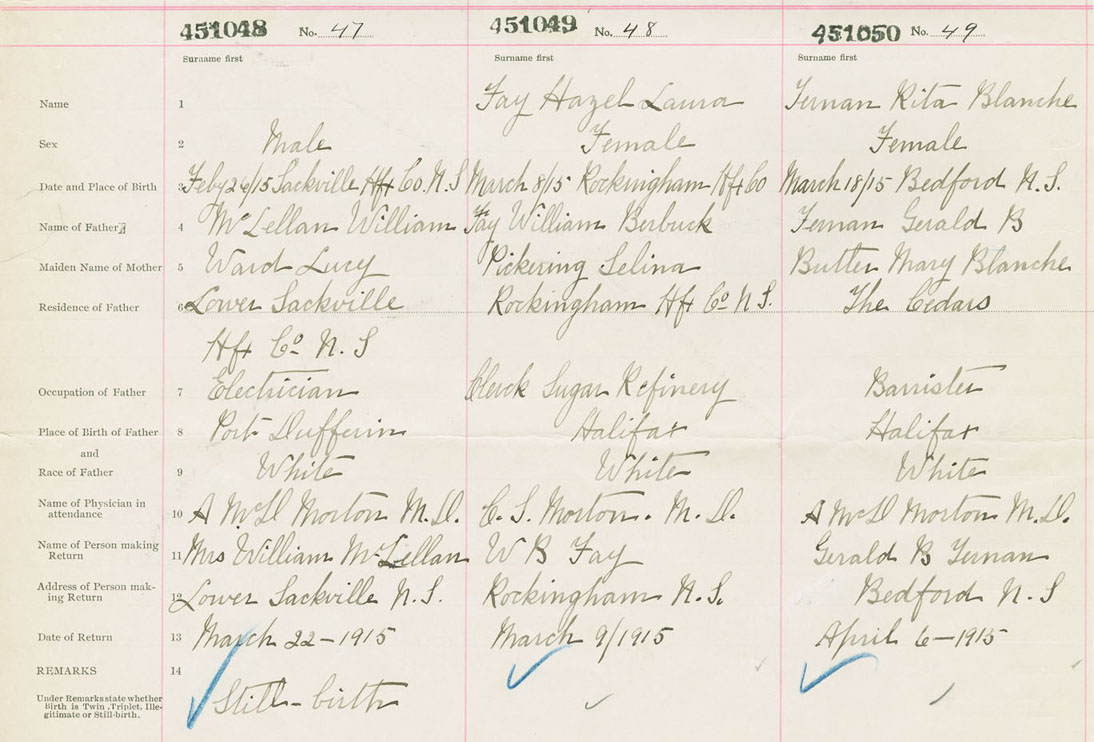 451048 No. 47 451049 No. 48 451050 No. 49
Surname first Surname first Surname first
Name 1 Fay Hazel Laura Ternan Rita Blanche
Sex 2 Male Female Female
Date and Place of Birth 3 Feby 26/15 Sackville Hfx Co. N.S March 8/15 Rockingham Hfx Co March 18/15 Bedford N.S.
Name of Father 4 McLellan William Fay William Berbuck Ternan Gerald B
Maiden Name of Mother 5 Ward Lucy Pickering Selina Butler Mary Blanche
Residence of Father 6 Lower Sackville Rockingham Hfx Co N.S. The Cedars
Hfx Co N.S
Occupation of Father 7 Electrician Clerck Sugar Refinery Barrister
Place of Birth of Father 8 Port Dufferin Halifax Halifax
and
Race of Father 9 White White White
Name of Physician in
attendance 10 A McD Morton M.D. C. S. Morton. M.D. A McD Morton M.D.
Name of Person making
Return 11 Mrs William McLellan W B Fay Gerald B Ternan
Address of Person mak-
ing Return 12 Lower Sackville N.S. Rockingham N.S. Bedford N.S
Date of Return 13 March 22-1915 March 9/1915 April 6-1915
REMARKS 14
Under Remarks state whether
Birth is Twin, Triplet, Ille-
gitimate or Still-birth.
Still-birth